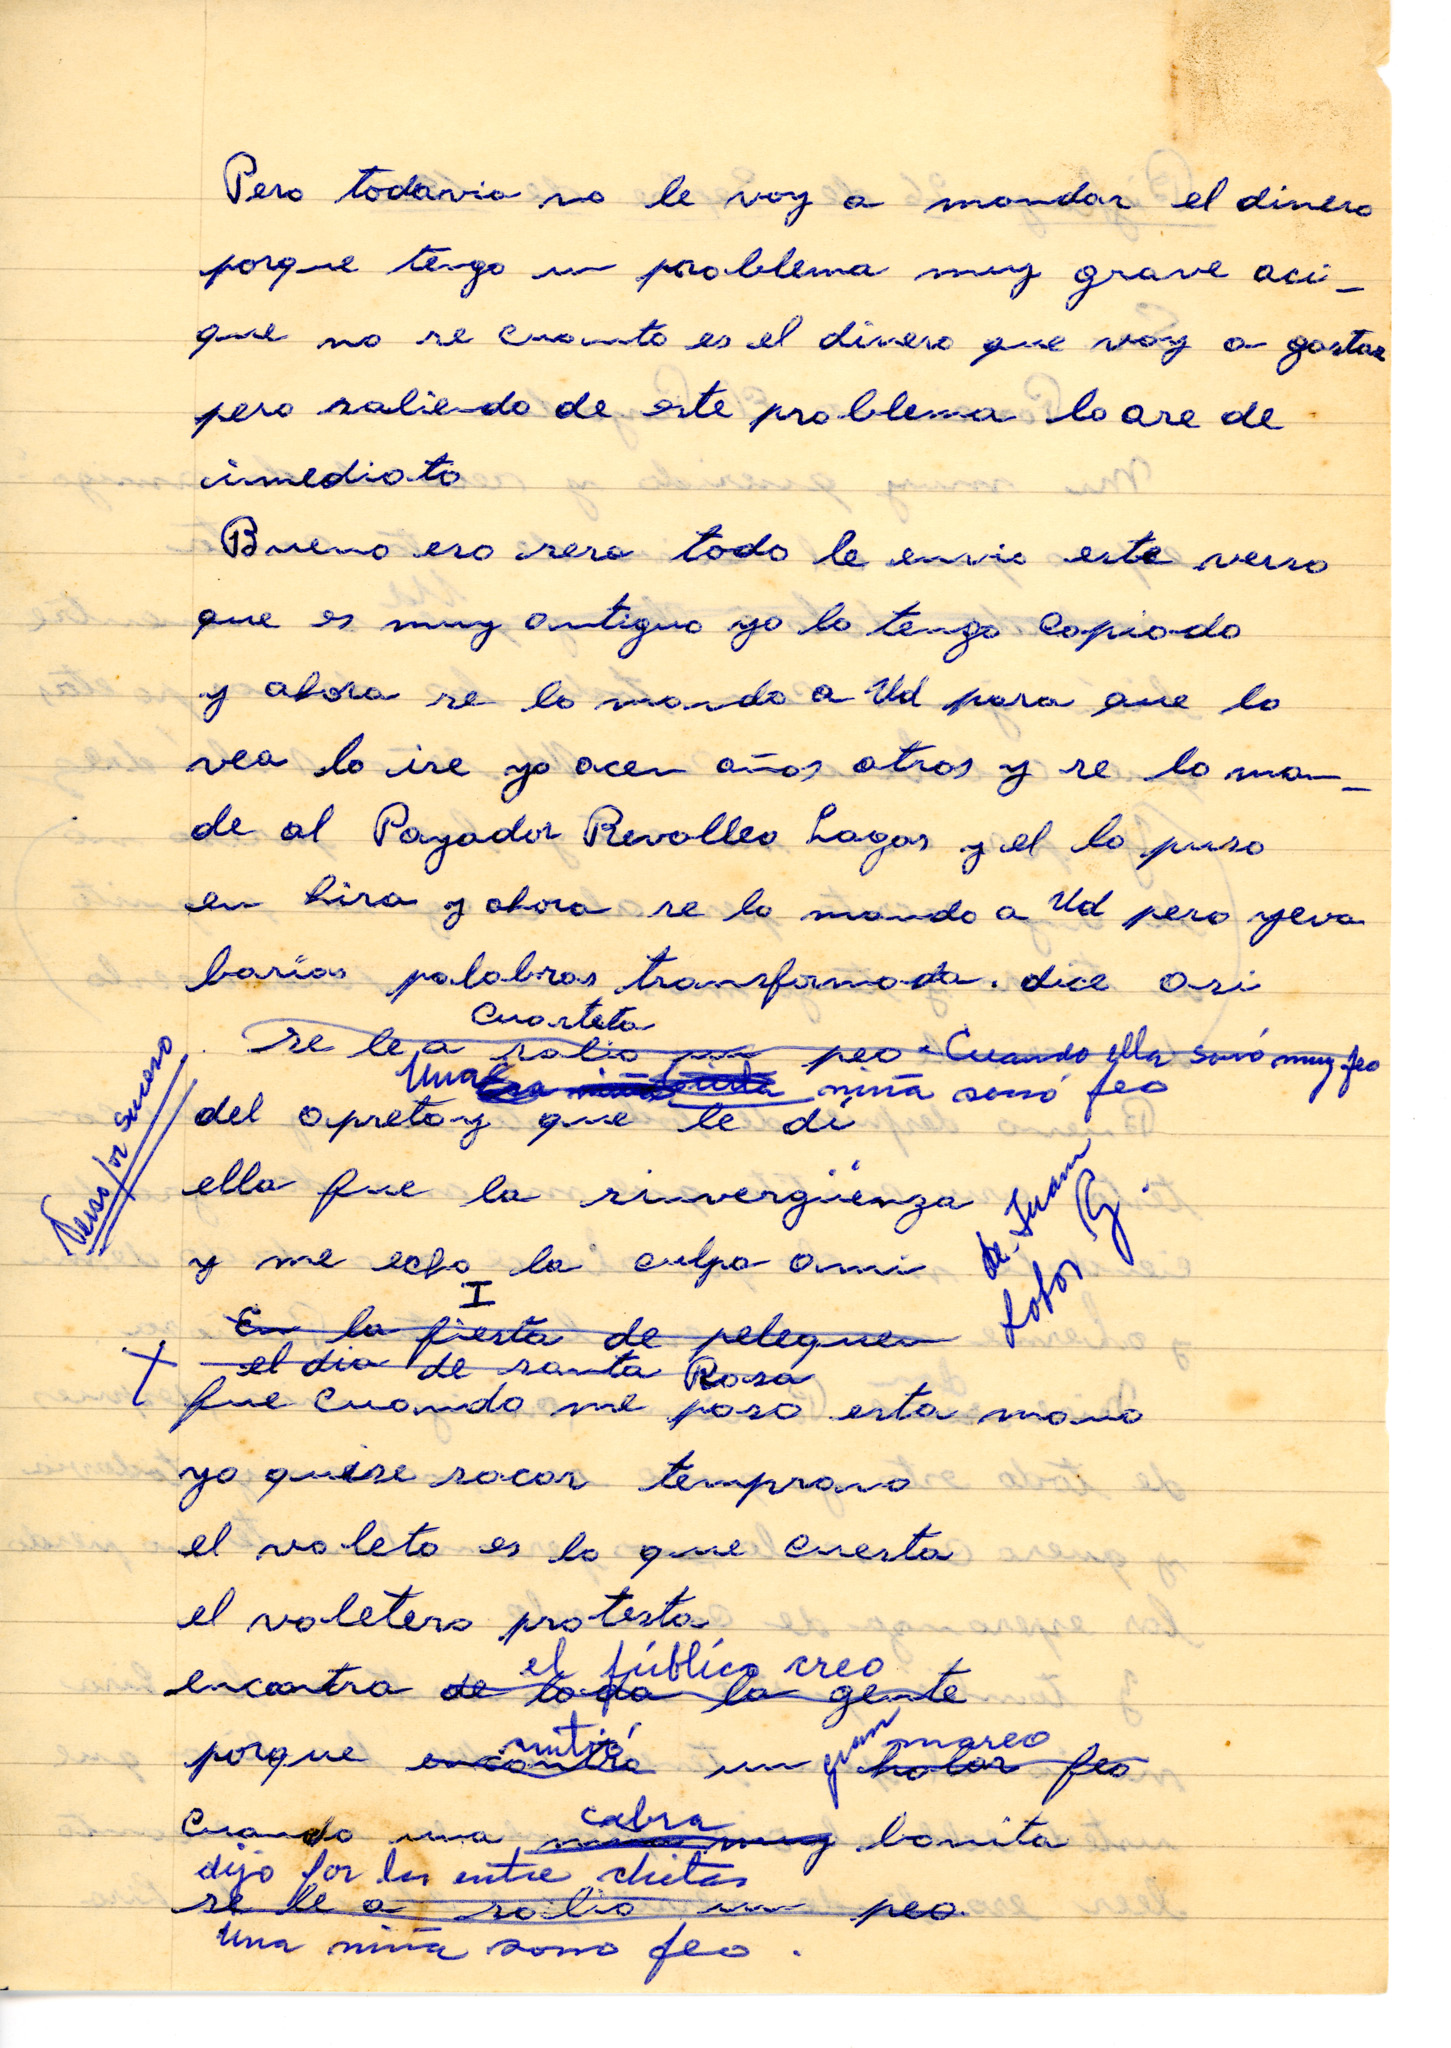 Pero todavia no le voy a mandar el dinero
porque tengo un problema muy grave aci-
que no se cuanto es el dinero que voy a gastar
pero saliendo de este problema lo are de
inmediato
Bueno eso sera todo le envio este verso
que es muy antiguo yo lo tengo copiado
y ahora se lo mando a Ud para que lo
vea lo ise yo acen años atros y se lo man-
de al Payador Revolleo Lagos y el lo puso
en Lira y ahora se lo mando a Ud pero yeva
barias palabras transformada. dice asi
Cuarteta
se le a salio un peo Cuando ella sonó muy feo
Una niña sonó feo
del apreton que le dí
ella fue la sinvergüenza
y me echo la culpa ami
Verso por suceso
de Juan Lobos
I
En la fiesta de pelequen
el dia de santa Rosa
fue cuando me paso esta mano
yo quise sacar temprano
el voleto es lo que cuesta
el voletero protesta
el público creo
encontra de toda la gente
porque encontrá un holor feo
gran mareo
cabra
Cuando una muy bonita
dijo por las entre chitas
se le a salio un peo.
Una niña sono feo.